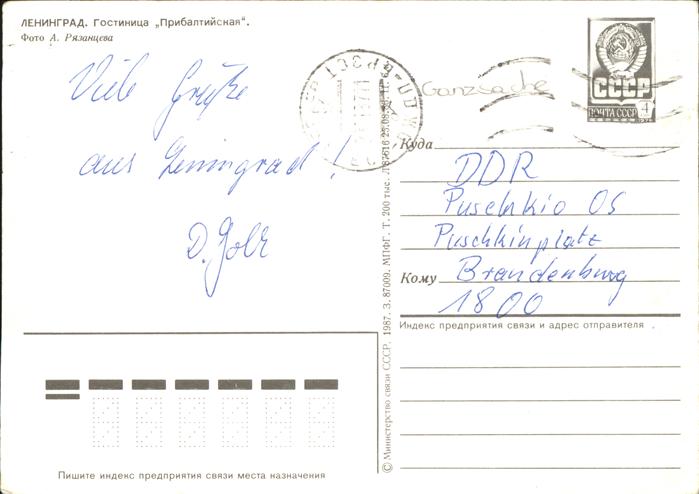 ЛЕНИНГРАД. Гостиница „Прибалтийская“.
Фото А. Рязанцева
Viele Grüße
aus Leningrad!
D.
Ganzsache
СССР
ПОЧТА СССР 4
Куда
DDR
Puschkio OS
Puschkinplatz
Кому Brandenburg
1800
Индекс предприятия связи и адрес отправителя
© Министерство связи СССР. 1987. З. 87009. МПФГ. Т. 200 тыс.
Пишите индекс предприятия связи места назначения